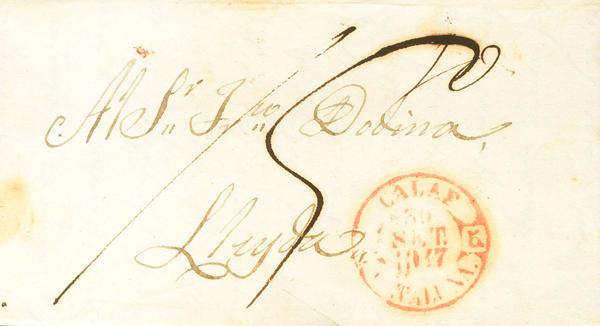 Al Sr. Frco. Dodina,
Lleyda
CALAF
30
SET.
1847
CATALUÑA.